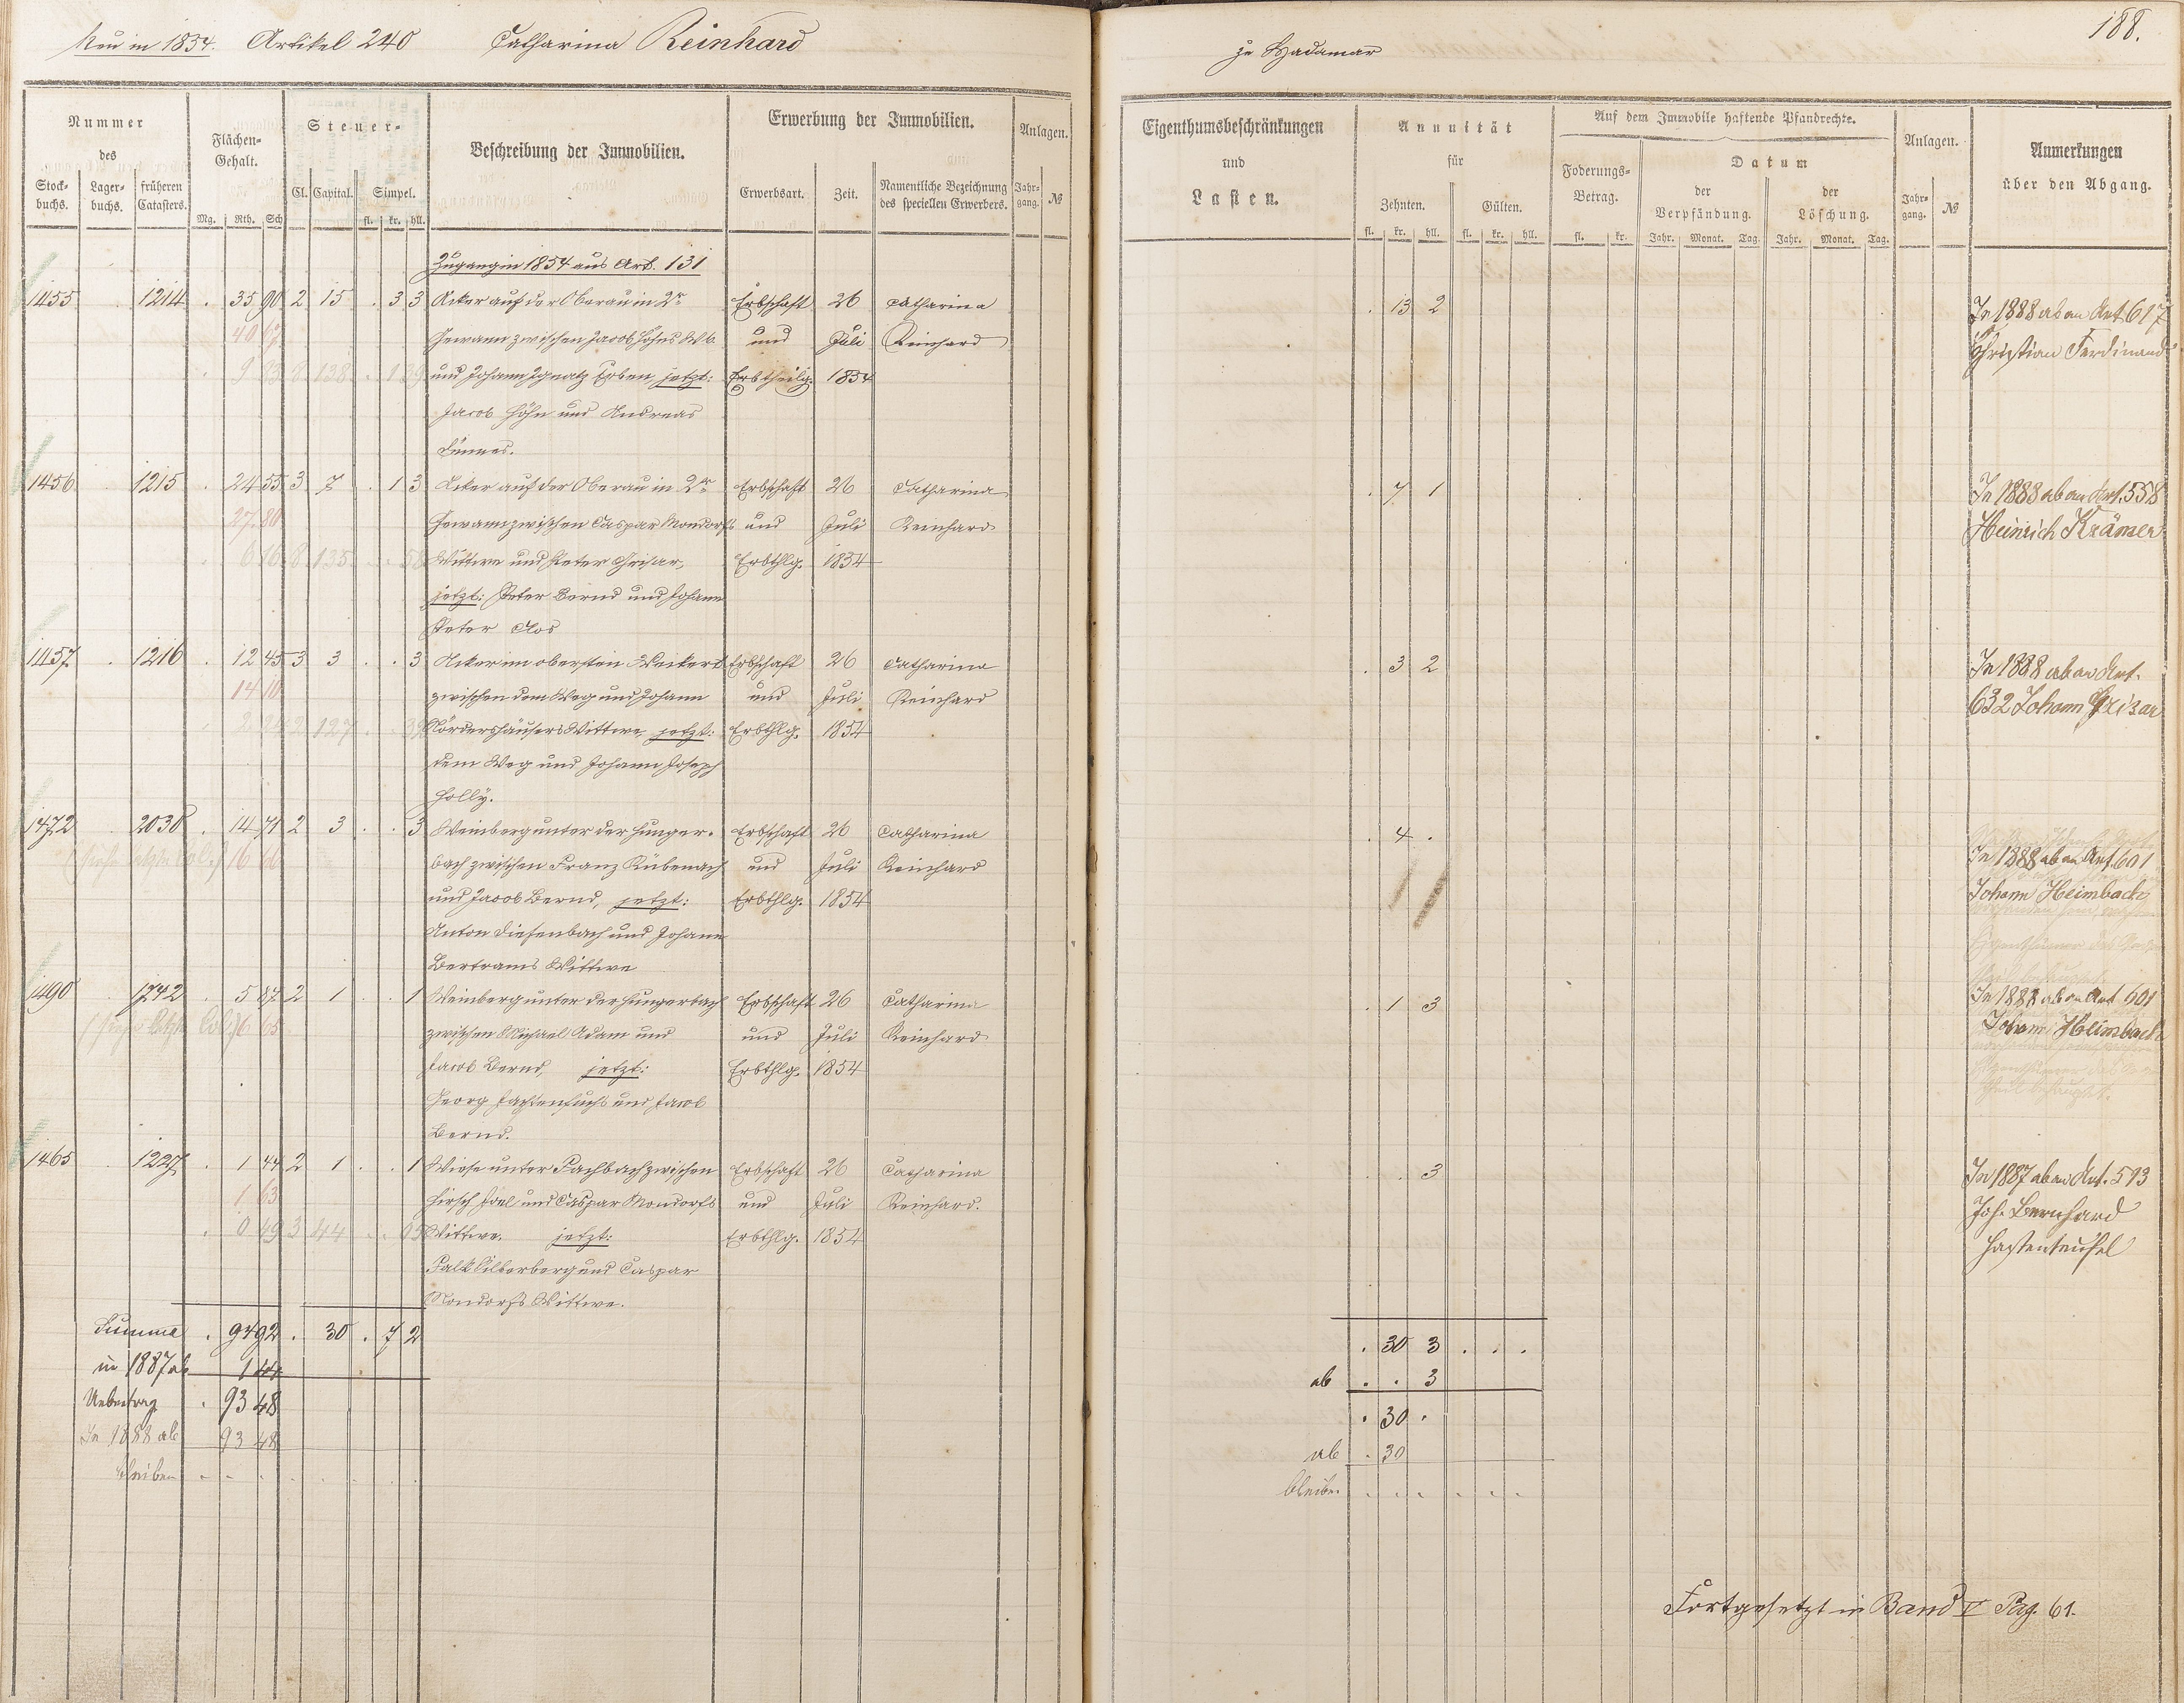 Neu in 1854. Artikel 240 Catharina Reinhard
zu Hadamar
188.
Nummer
des
Stock-
buchs.
Lager-
buchs.
früheren
Catasters.
Flächen-
Gehalt.
Mg. Rth. Sch
Steuer-
Cl. Capital. Simpel.
fl. kr. hll.
Beschreibung der Immobilien.
Erwerbung der Immobilien.
Erwerbsart. Zeit.
Namentliche Bezeichnung
des speciellen Erwerbers.
Anlagen.
Jahr-
gang. №
Eigenthumsbeschränkungen
und
Lasten.
Annuität
für
Zehnten. Gülten.
fl. kr. hll. fl. kr. hll.
Auf dem Immobile haftende Pfandrechte.
Foderungs-
Betrag.
fl. kr.
Datum
der
Verpfändung.
Jahr. Monat. Tag.
der
Löschung.
Jahr. Monat. Tag.
Anlagen.
Jahr-
gang. №
Anmerkungen
über den Abgang.
Zugang in 1854 aus Art. 131
1455 . 1214 . 35 90 2 15 . 3 3 Acker auf der Oberau in 2r Erbschaft 26 Catharina . 13 2 In 1888 ab an Art. 617
40 67 Gewann zwischen Jacob Höhns Wb. und Juli Reinhard Christian Ferdinand
. 9 83 8 138 . 1 39 und Johann Ignatz Erben, jetzt: Erbtheilg. 1854
Jacob Höhn und Andreas
1456 . 1215 . 24 55 3 7 . 1 3 Acker auf der Oberau in 2r Erbschaft 26 Catharina . 7 1 In 1888 ab an Art. 558
27 80 Gewann zwischen Caspar Mondorfs und Juli Reinhard Heinrich Krämer
. 6 16 8 135 . . 58 Wittwe und Peter Grisar, Erbthlg. 1854
jetzt: Peter Bernd und Johann
Peter Clos
1457 . 1216 . 12 45 3 3 . . 3 Acker im obersten Weckert Erbschaft 26 Catharina . 3 2 In 1888 ab an Art.
14 10 zwischen dem Weg und Johann und Juli Reinhard 632 Johann Grisar
Nördershäusers Wittwe, jetzt: Erbthlg. 1854
dem Weg und Johann Joseph
Holly.
1472 . 2030 . 14 71 2 3 . . 3 Weinberg unter der Hunger- Erbschaft 26 Catharina . 4 . In 1888 ab an Art. 601
16 66 bach zwischen Franz Rübenach und Juli Reinhard Johann Heimbach
und Jacob Bernd, jetzt: Erbthlg. 1854
Anton Diefenbach und Johann
Bertrams Wittwe
1490 . 1742 . 5 87 2 1 . . 1 Weinberg unter der Hungerbach Erbschaft 26 Catharina . 1 3 In 1888 ab an Art. 601
6 65 zwischen Michael Adam und und Juli Reinhard Johann Heimbach
Jacob Bernd, jetzt: Erbthlg. 1854
Georg Hastenteufel und Jacob
Bernd.
1465 . 1227 . 1 44 2 1 . . 1 Wiese unter Fachbach zwischen Erbschaft 26 Catharina . . 3 In 1887 ab an Art. 593
1 63 Hirsch Joel und Caspar Mondorfs und Juli Reinhard. Joh. Bernhard
. 0 49 3 44 . . 05 Wittwe. jetzt: Erbthlg. 1854 Hastenteufel
Falk Silberberg und Caspar
Mondorfs Wittwe.
Summa . 94 92 . 30 . 7 2 . 30 3 . . .
in 1887 ab 1 44 ab . . 3
Uebertrag . 93 48 . 30 .
In 1888 ab 93 48 ab . 30
bleiben . . . . . . . . bleiben . . . . . .
Fortgesetzt in Band V Pag. 61.